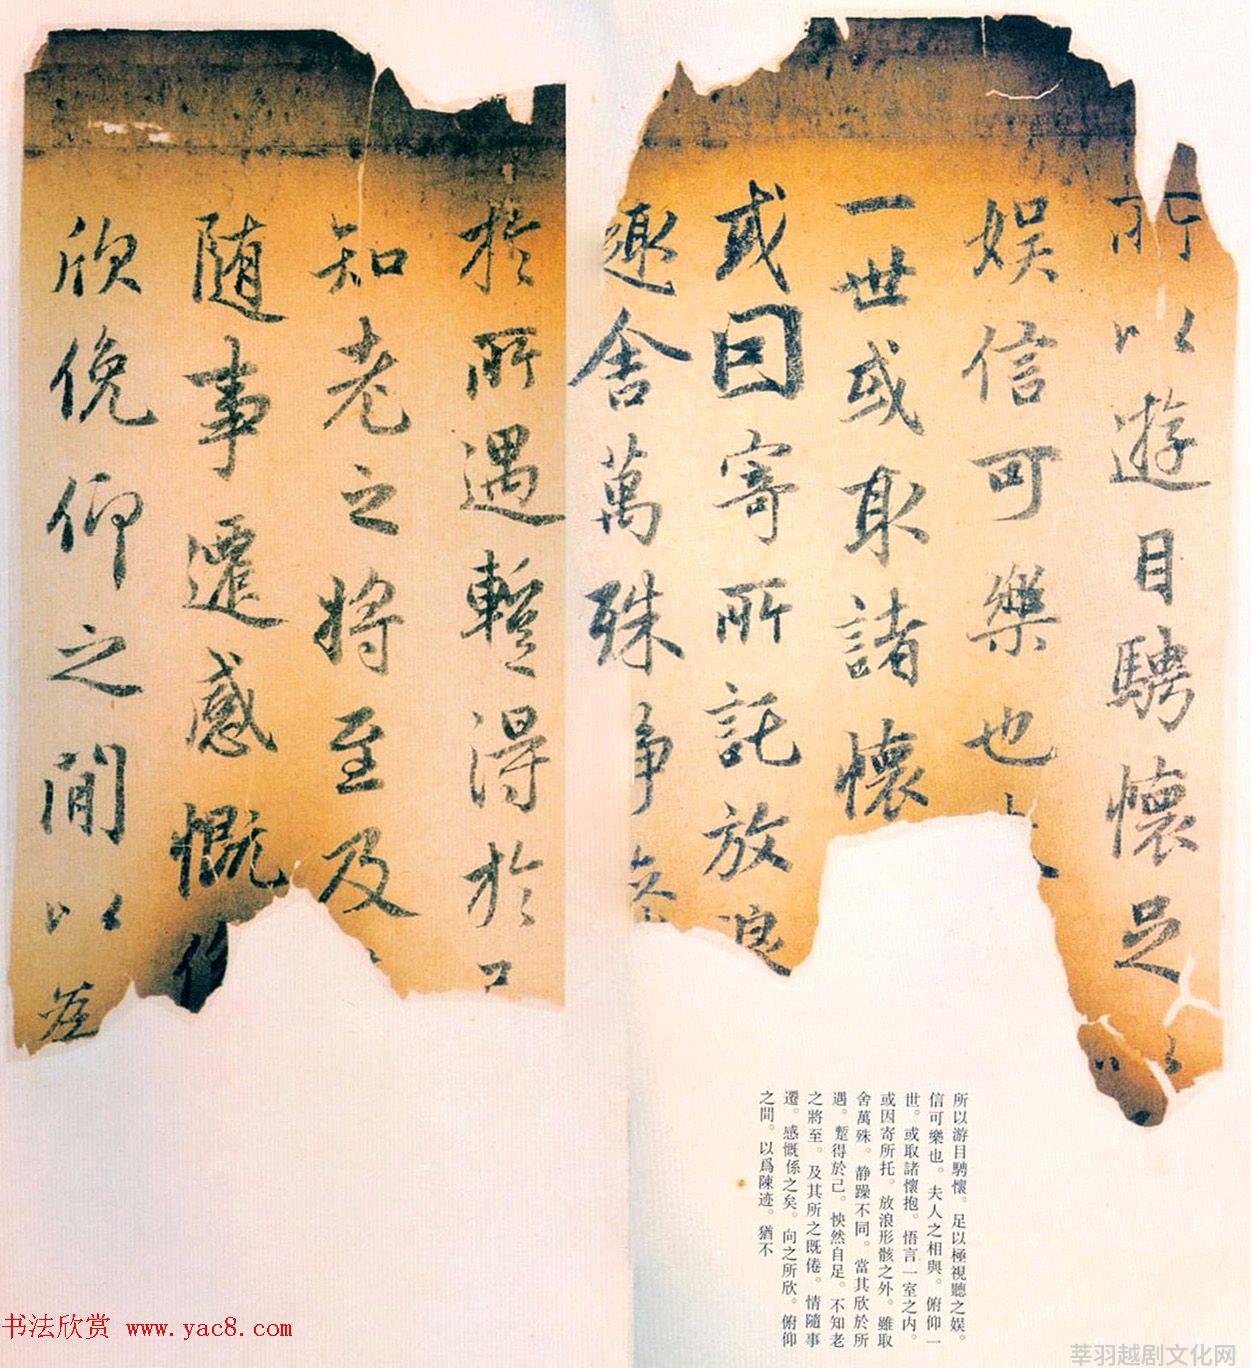 所以遊目騁懷足以
娛信可樂也
一世或取諸懷
或因寄所託放浪
趣舍萬殊静
於所遇暫得於
知老之將至及
随事遷感慨係
欣俛仰之閒以為
所以游目騁懷。足以極視聽之娛。
信可樂也。夫人之相與。俯仰一
世。或取諸懷抱。悟言一室之内。
或因寄所托。放浪形骸之外。雖取
舍萬殊。静躁不同。當其欣於所
遇。蹔得於己。怏然自足。不知老
之將至。及其所之既倦。情隨事
遷。感慨係之矣。向之所欣。俯仰
之間。以爲陳迹。猶不
书法欣赏 www.yac8.com
莘羽越剧文化网